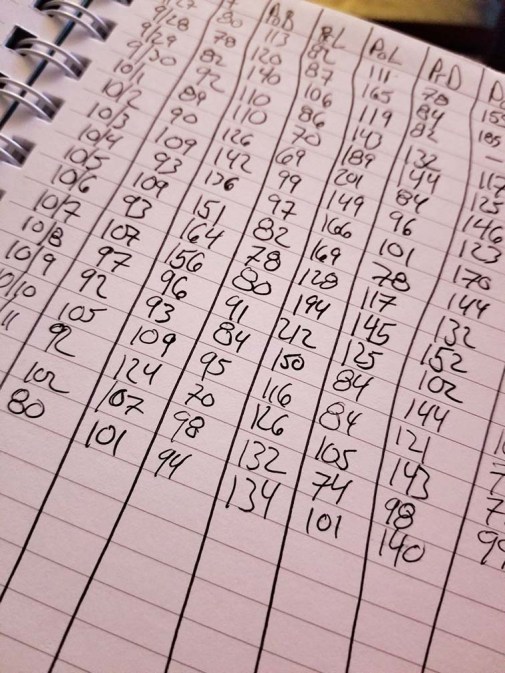 80 113 82 111 78 155
9/28 78 120 87 165 84 185
9/29 82 140 106 119 82 –
9/30 92 110 86 143 132 117
10/1 89 110 70 189 144 125
10/2 90 126 69 201 84 146
10/3 109 142 99 149 96 123
10/4 93 136 97 166 101 170
10/5 109 151 82 169 78 144
10/6 93 164 78 128 117 132
10/7 107 156 80 194 145 152
10/8 97 96 91 212 125 102
10/9 92 93 84 150 84 144
10/10 105 109 95 116 84 121
92 124 70 126 105 143
102 107 98 132 74 98
80 101 94 134 101 140